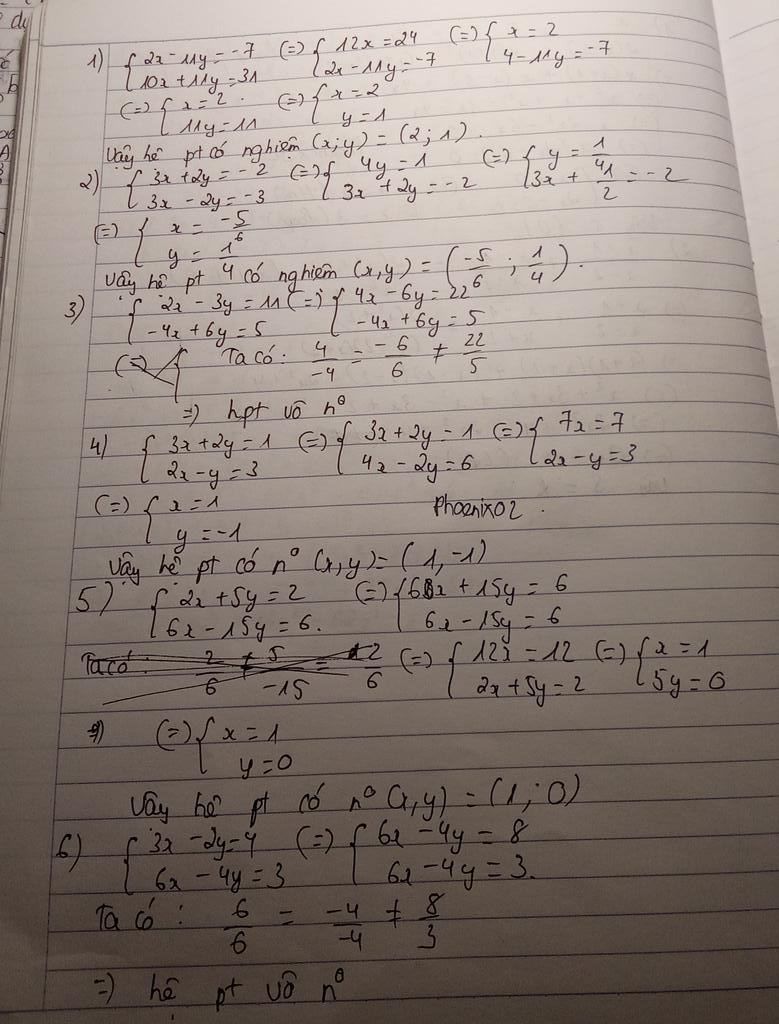 1) { 2x - 11y = -7 (=) { 12x = 24 (=) { x = 2
10x + 11y = 31 2x - 11y = -7 4 - 11y = -7
(=) { x = 2 . (=) { x = 2
11y = 11 y = 1
Vậy hệ pt có nghiệm (x;y) = (2;1).
2) { 3x + 2y = -2 (=) { 4y = 1 (=) { y = 1/4
3x - 2y = -3 3x + 2y = -2 3x + 1/2 = -2
(=) { x = -5/6
y = 1/4
Vậy hệ pt có nghiệm (x,y) = (-5/6 ; 1/4).
3) { 2x - 3y = 11 (=) { 4x - 6y = 22
-4x + 6y = 5 -4x + 6y = 5
(=) { Ta có: 4/-4 = -6/6 ≠ 22/5
=) hpt vô n°
4) { 3x + 2y = 1 (=) { 3x + 2y = 1 (=) { 7x = 7
2x - y = 3 4x - 2y = 6 2x - y = 3
(=) { x = 1 Phoenix02 .
y = -1
Vậy hệ pt có n° (x,y) = (1,-1)
5) { 2x + 5y = 2 (=) { 6x + 15y = 6
6x - 15y = 6. 6x - 15y = 6
Ta có: 2/6 ≠ 5/-15 = 2/6 (=) { 12x = 12 (=) { x = 1
2x + 5y = 2 5y = 0
(=) { x = 1
y = 0
Vậy hệ pt có n° (x,y) = (1;0)
6) { 3x - 2y = 4 (=) { 6x - 4y = 8
6x - 4y = 3 6x - 4y = 3.
Ta có: 6/6 = -4/-4 ≠ 8/3
=) hệ pt vô n°